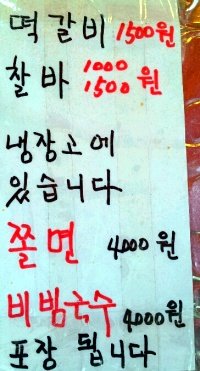 떡갈비 1500원
찰바 1000
1500원
냉장고에
있습니다
쫄면 4000원
비빔국수 4000원
포장 됩니다